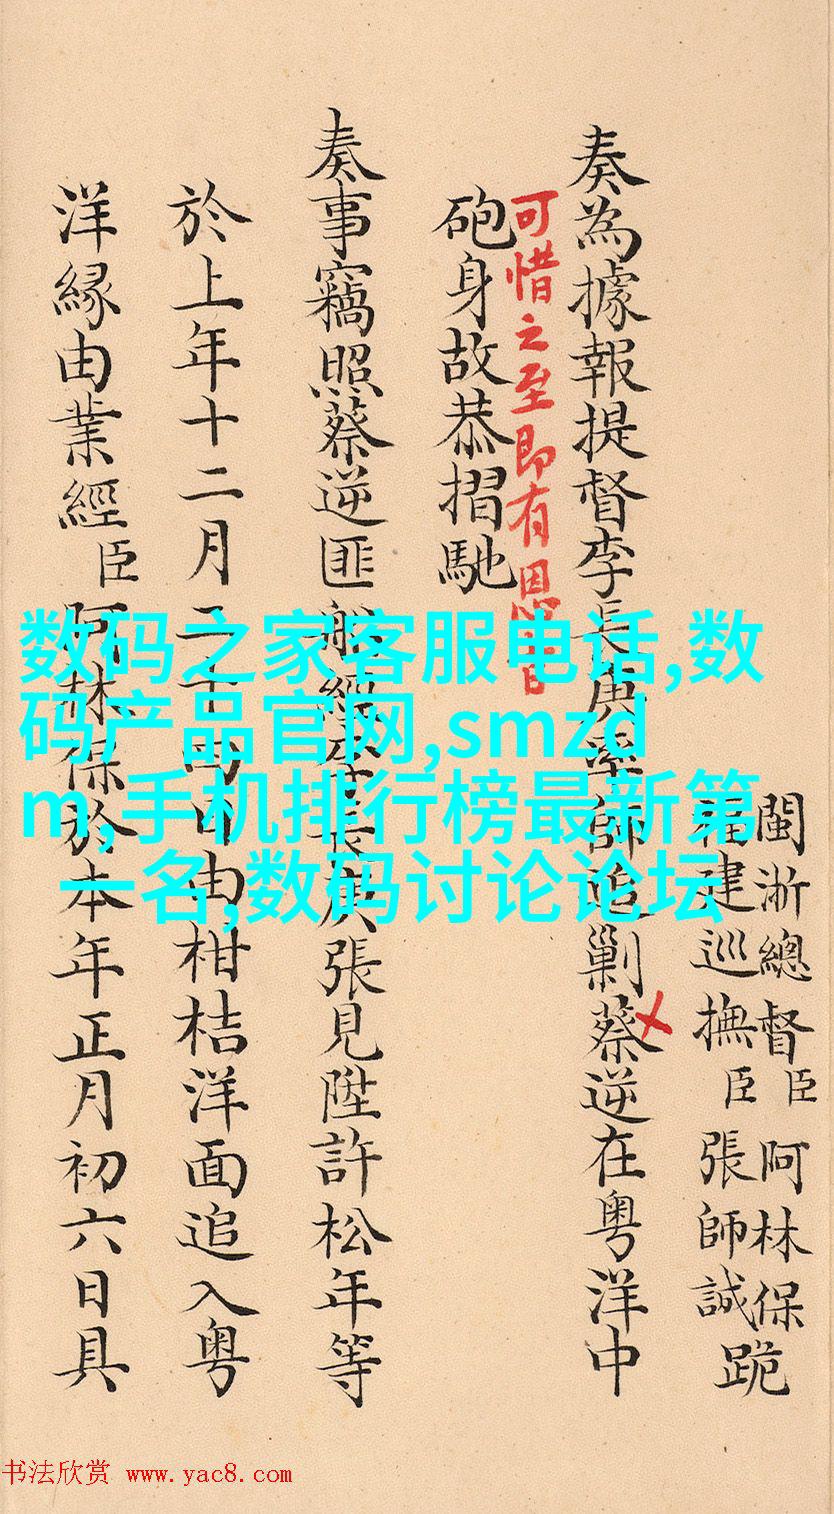 閩浙總督臣阿林保跪
福建巡撫臣張師誠
奏為據報提督李長庚率師追剿蔡逆在粵洋中
可惜之至即有恩旨
砲身故恭摺馳
奏事竊照蔡逆匪船經李長庚張見陞許松年等
於上年十二月二十四日由柑桔洋面追入粵
洋緣由業經臣阿林保於本年正月初六日具
数码之家客服电话,数
码产品官网,smzd
m,手机排行榜最新第
一名,数码讨论论坛
书法欣赏 www.yac8.com